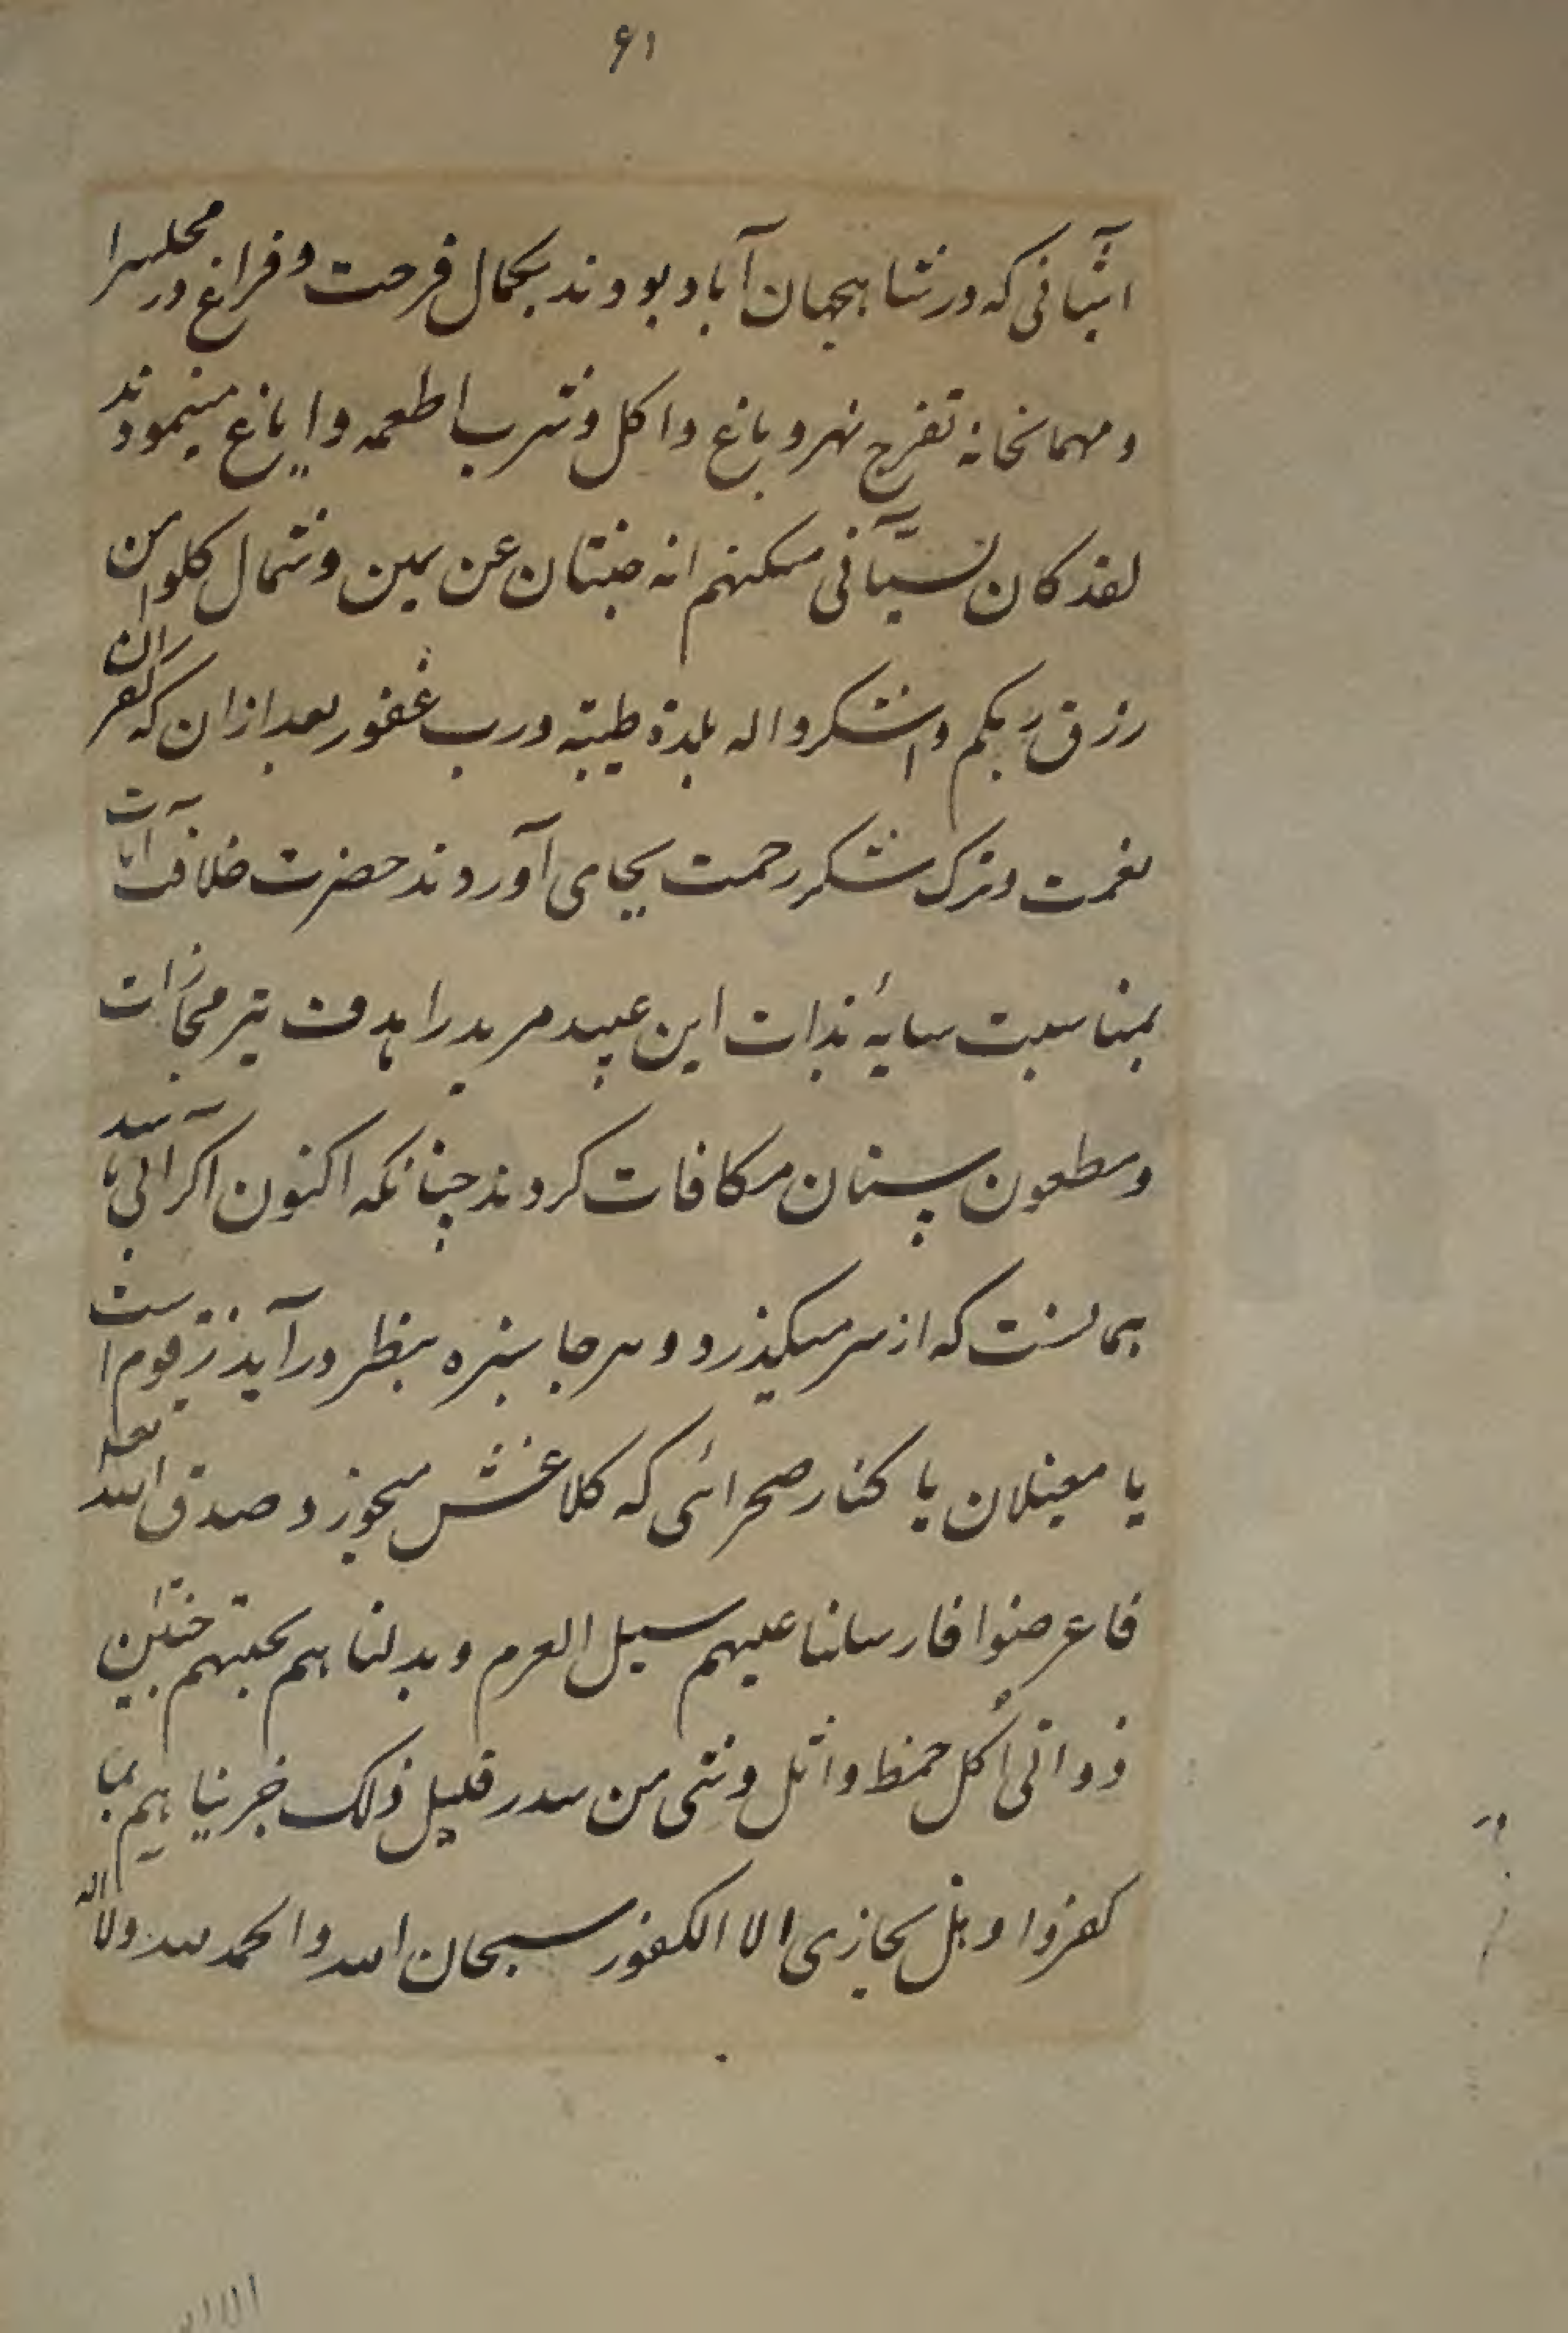 ۶۱
آنانی که در شاهجهان آباد بودند بکمال فرحت و فراغ در محلسرا
و مهمانخانه تفرج نهر و باغ و اکل و شرب اطعمه و ایاغ مینمودند
لقد کان لسبآ فی مسکنهم آنه جنتان عن یمین و شمال کلوا من
رزق ربکم و اشکروا له بلدة طیبة و رب غفور بعد ازان که کفران
نعمت و ترک شکر رحمت بجای آوردند حضرت خلافت آیات
بمناسبت سایهٔ ذات این عبید مرید را هدف تیر مجازات
و مطعون سنان مکافات کردند چنانکه اکنون اگر آبی باشد
همانست که از سر میگذرد و هر جا سبزه بنظر درآید زقوم است
یا مغیلان یا کنار صحرائی که کلاغش میخورد صدق الله تعالی
فاعرضوا فارسلنا علیهم سیل العرم و بدلناهم بجنتیهم جنتین
ذواتی اکل خمط و اثل و شی من سدر قلیل ذلک جزیناهم بما
کفروا و هل نجازی الا الکفور سبحان الله و الحمد لله و لا اله